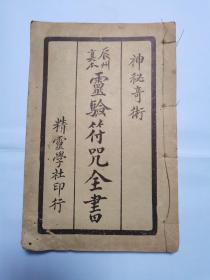 神秘奇術
辰州真本
靈驗符咒全書
精靈學社印行